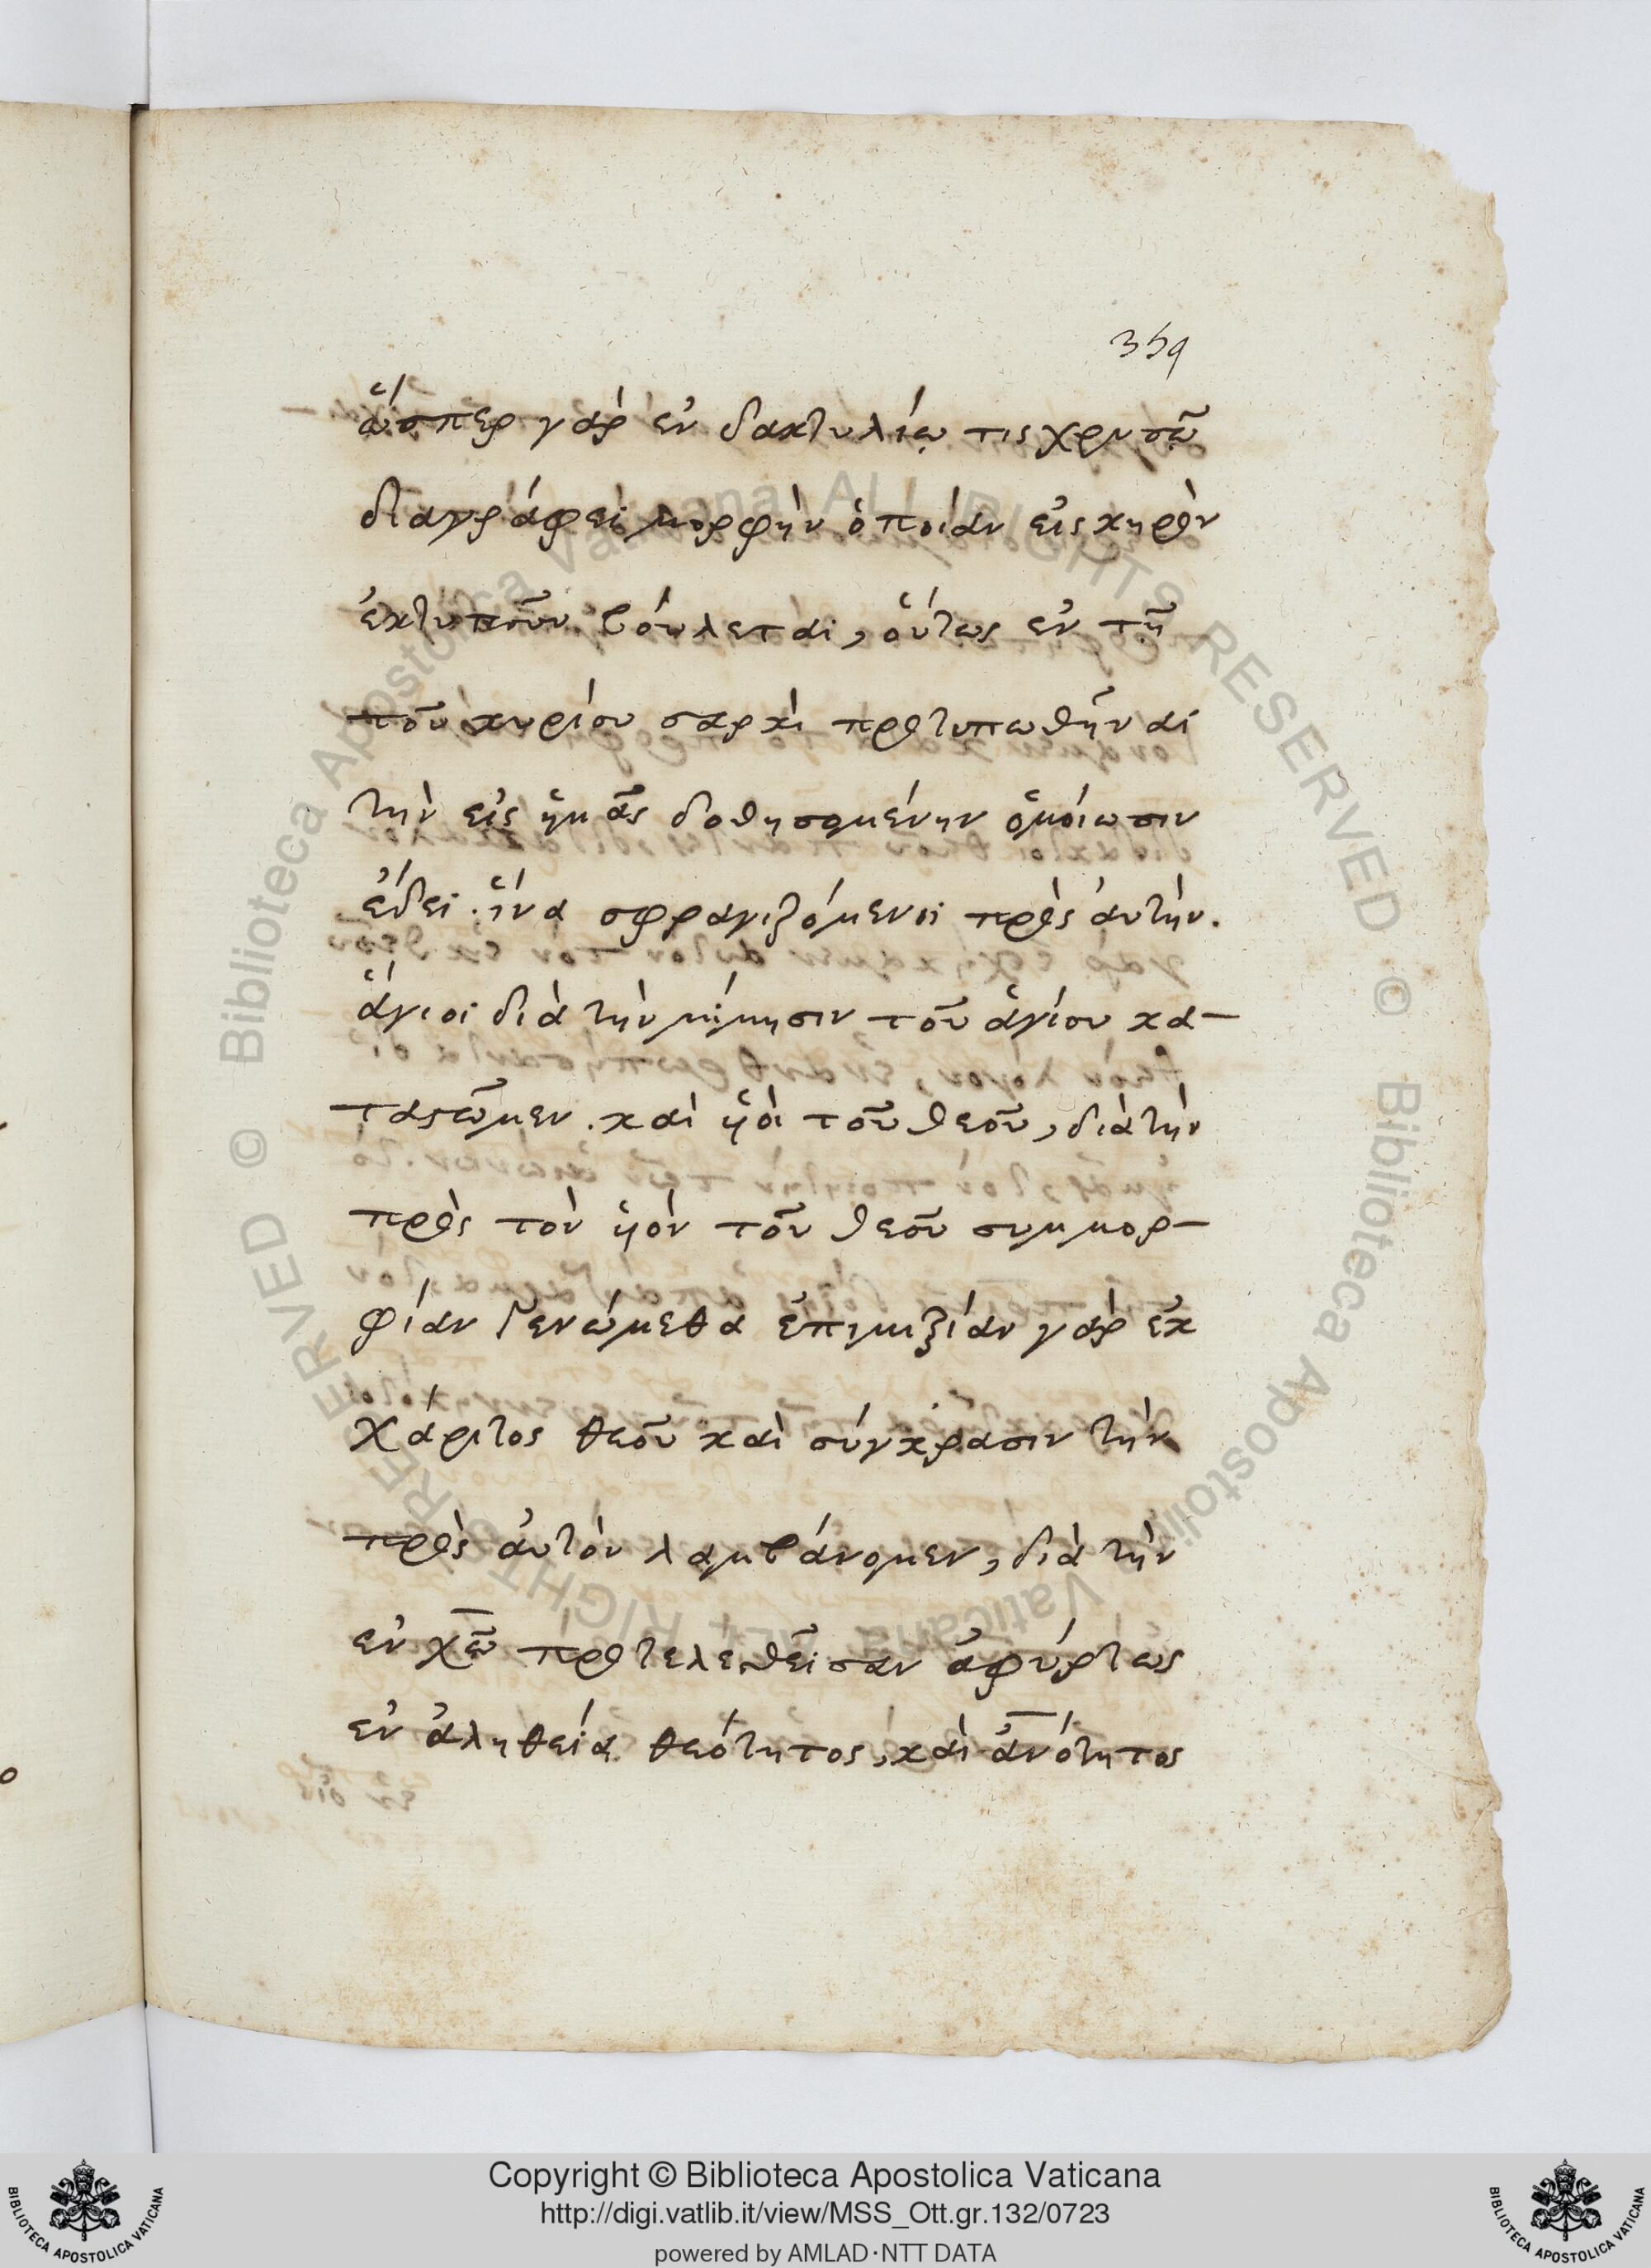 359
ὥσπερ γὰρ ἐν δακτυλίῳ τις χρυσῷ
διαγράφει μορφὴν ὁποίαν εἰς κηρὸν
ἐκτυποῦν βούλεται, οὕτως ἐν τῇ
τοῦ κυρίου σαρκὶ προτυπωθῆναι
τὴν εἰς ἡμᾶς δοθησομένην ὁμοίωσιν
ἔδει. ἵνα σφραγιζόμενοι πρὸς αὐτὴν.
ἅγιοι διὰ τὴν μίμησιν τοῦ ἁγίου κα-
ταστῶμεν. καὶ ὑιοὶ τοῦ θεοῦ, διὰ τὴν
πρὸς τὸν ὑιὸν τοῦ θεοῦ συμμορ-
φίαν γενώμεθα ἐπιμιξίαν γὰρ ἐκ
χάριτος θεοῦ καὶ σύγκρασιν τὴν
πρὸς αὐτὸν λαμβάνομεν, διὰ τὴν
ἐν χῶ προτελεσθεῖσαν ἀφύρτως
ἐν ἀληθείᾳ θεότητος, καὶ ἀνότητος
Copyright © Biblioteca Apostolica Vaticana
http://digi.vatlib.it/view/MSS_Ott.gr.132/0723
powered by AMLAD·NTT DATA
BIBLIOTECA APOSTOLICA VATICANA
BIBLIOTECA APOSTOLICA VATICANA